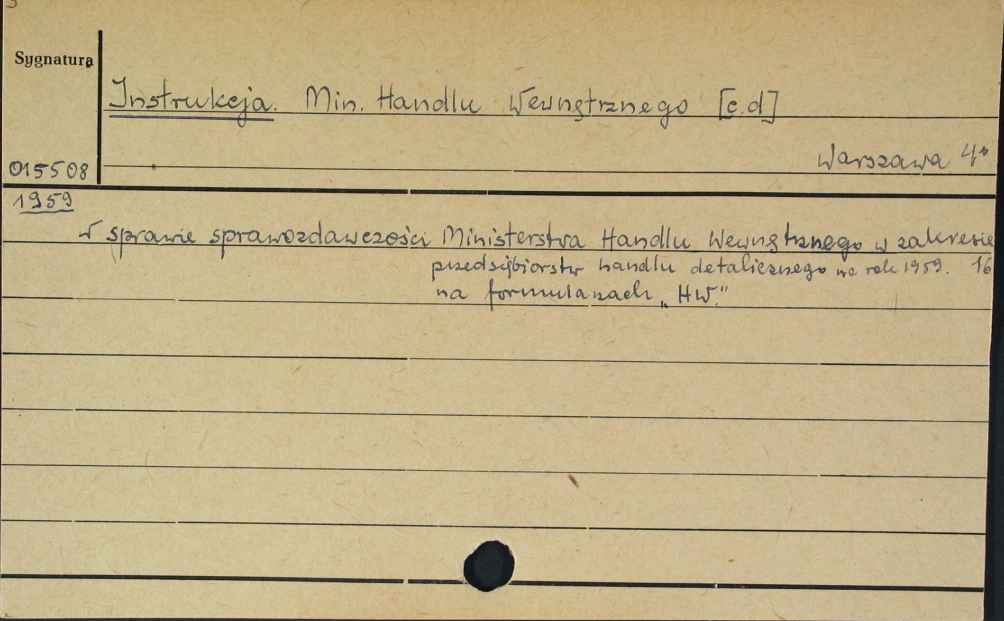 Sygnatura
Instrukcja. Min. Handlu Wewnętrznego [c.d]
Warszawa 4°
015508
1959
w sprawie sprawozdawczości Ministerstwa Handlu Wewnętrznego w zakresie
przedsiębiorstw handlu detalicznego na rok 1959. 16
na formularzach „HW."